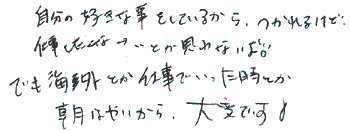 自分の好きな事をしているから、つかれるけど
仕事したくなーいとか思わないよ。
でも海外とか仕事でいった時とか
朝はやいから、大変です!